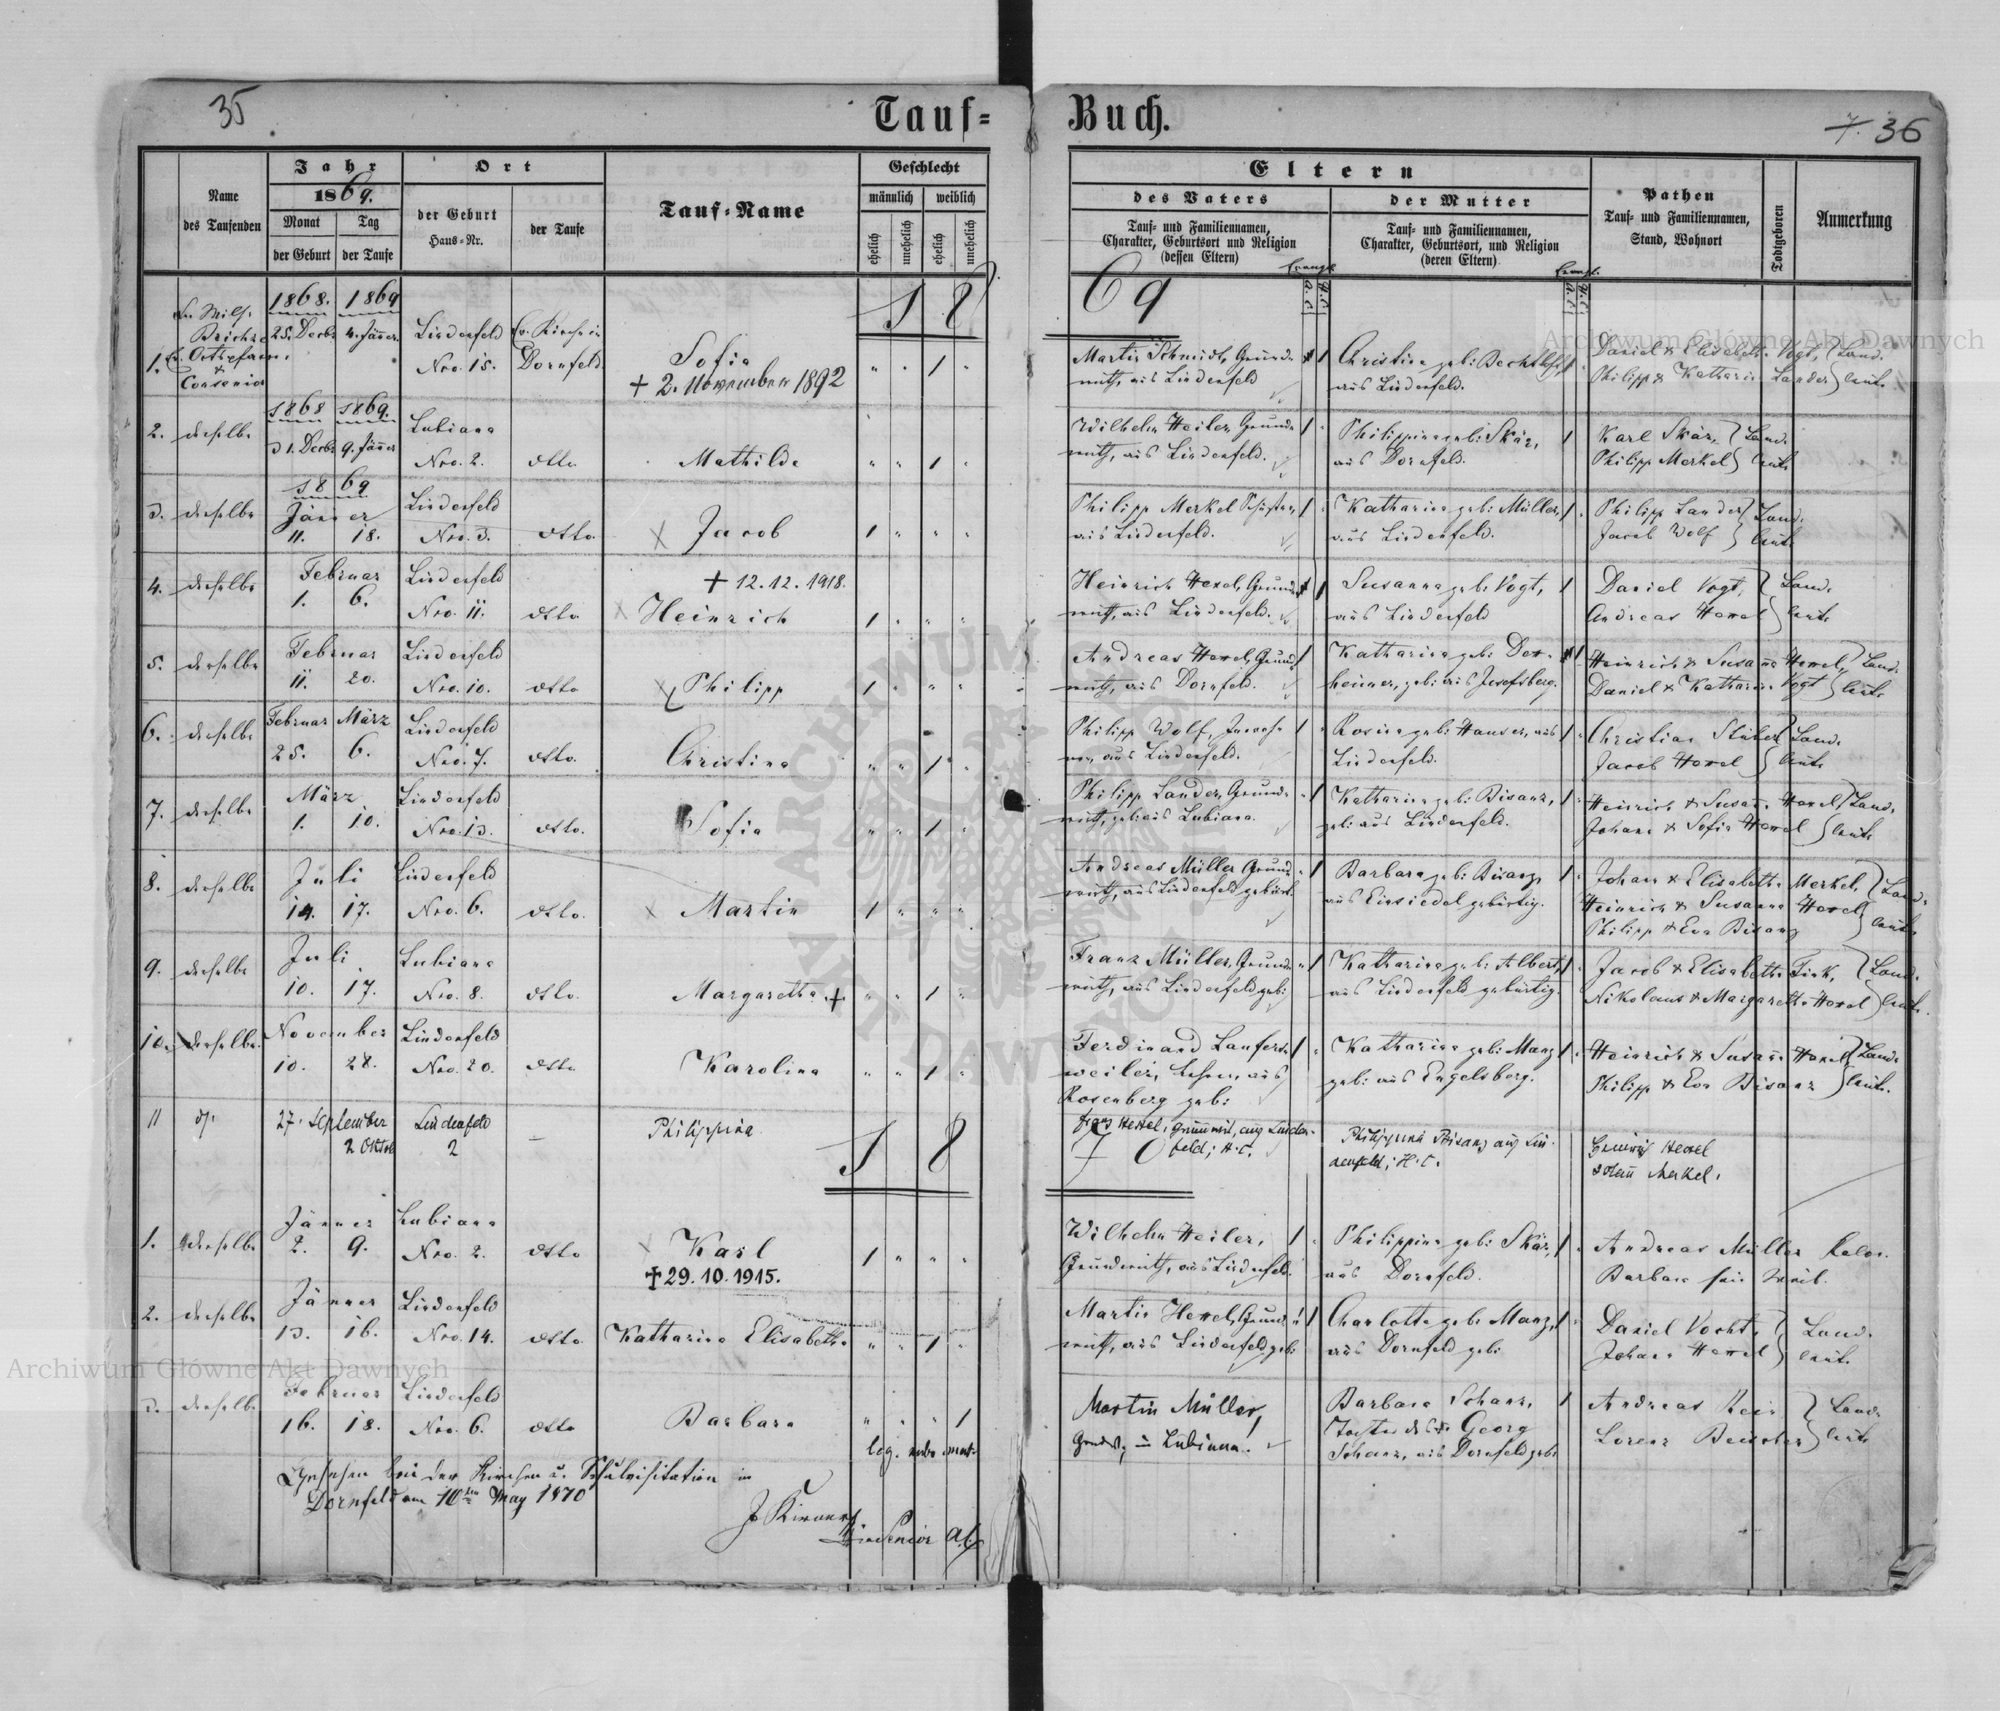 35
Tauf= Buch.
7. 36
Name des Taufenden
Jahr
1869.
Monat der Geburt
Tag der Taufe
Ort
der Geburt Haus=Nr.
der Taufe
Tauf=Name
Geschlecht
männlich
weiblich
ehelich
unehelich
ehelich
unehelich
Eltern
des Vaters
Tauf= und Familiennamen, Charakter, Geburtsort und Religion (dessen Eltern)
der Mutter
Tauf= und Familiennamen, Charakter, Geburtsort, und Religion (deren Eltern)
Pathen
Tauf= und Familiennamen, Stand, Wohnort
Todtgeboren
Anmerkung
18 69
1. 1868. 1869
25. Decbr 4. Jäner Lindenfeld Nro. 15. Ev. Kirche in Dornfeld
Sofia
+ 2. November 1892
Martin Schmidt, Grund=
wirth, aus Lindenfeld
Christina geb: Bechtloff
aus Lindenfeld.
Daniel & Elisabeth Vogt,
Philipp & Katharina Lander
Land=
leute
2. derselbe 1868 1869.
31. Decbr 9. Jäner Lubiana Nro. 2. dtto
Mathilde
Wilhelm Heiler, Grund=
wirth, aus Lindenfeld.
Philippina geb: Skär,
aus Dornfeld.
Karl Skär,
Philipp Merkel
Land=
leute
3. derselbe 1869
Jänner 11. 18. Lindenfeld Nro. 3. dtto.
Jacob
Philipp Merkel
aus Lindenfeld.
Katharina geb: Müller,
aus Lindenfeld.
Philipp Lander
Jacob Wolf
Land=
leute
4. derselbe Februar 1. 6. Lindenfeld Nro. 11. dtto
+ 12.12.1918.
Heinrich
Heinrich Hexel, Grund=
wirth, aus Lindenfeld.
Susanna geb: Vogt,
aus Lindenfeld
Daniel Vogt,
Andreas Hexel
Land=
leute
5. derselbe Februar 11. 20. Lindenfeld Nro. 10. dtto
Philipp
Andreas Hexel, Grund=
wirth, aus Dornfeld.
Katharina geb:
heimer, geb: aus Josefsberg.
Heinrich & Susana Hexel,
Daniel & Katharina Vogt
Land=
leute
6. derselbe Februar März 25. 6. Lindenfeld Nro. 7. dtto.
Christina
Philipp Wolf,
aus Lindenfeld.
Rosina geb: Hauser, aus
Lindenfeld.
Christian Stüber
Jacob Hexel
Land=
leute
7. derselbe März 1. 10. Lindenfeld Nro. 13. dtto.
Sofia
Philipp Lander, Grund=
wirth, geb: aus Lubiana.
Katharina geb: Bisanz,
geb: aus Lindenfeld.
Heinrich & Susana Hexel,
Johann & Sofia Hexel
Land=
leute
8. derselbe Juli 14. 17. Lindenfeld Nro. 6. dtto.
Martin
Andreas Müller, Grund=
wirth, aus Lindenfeld gebürt.
Barbara geb: Bisanz,
aus Einsiedel gebürtig.
Johann & Elisabeth Merkel,
Heinrich & Susanna Hexel
Philipp & Eva Bisanz
Land=
leute
9. derselbe Juli 10. 17. Lubiana Nro. 8. dtto.
Margaretha +
Franz Müller, Grund=
wirth, aus Lindenfeld geb:
Katharina geb: Albert,
aus Lindenfeld gebürtig.
Jacob & Elisabeth Fink,
Nikolaus & Margareth Hexel
Land=
leute.
10. derselbe November 10. 28. Lindenfeld Nro. 20. dtto
Karolina
Ferdinand Laufers=
weiler, Lehrer, aus
Rosenberg geb:
Katharina geb: Manz
geb: aus Engelsberg.
Heinrich & Susana Hexel
Philipp & Eva Bisanz
Land=
leute.
11 27. September
2 Oktob Lindenfeld 2
Philippina
Franz Hexel, Grundwirt, aus Linden=
feld; H.C.
Philippina Bisanz aus Lin=
denfeld; H.C.
Heinrich Hexel
Johann Merkel.
18 70
1. derselbe Jänner 2. 9. Lubiana Nro. 2. dtto
Karl
+ 29.10.1915.
Wilhelm Heiler,
Grundwirth, aus Lindenfeld.
Philippina geb: Skär,
aus Dornfeld.
Andreas Müller
Barbara sein Weib.
2. derselbe Jänner 13. 16. Lindenfeld Nro. 14. dtto
Katharina Elisabeth
Martin Hexel, Grund=
wirth, aus Lindenfeld geb:
Charlotte geb: Manz,
aus Dornfeld geb:
Daniel Vocht,
Johann Hexel
Land=
leute.
3. derselbe Februar 16. 18. Lindenfeld Nro. 6. dtto
Barbara
Martin Müller,
Grundw. in Lubiana.
Barbara Schanz,
Tochter des Georg
Schanz, aus Dornfeld geb:
Andreas Rein
Lorenz
Land=
leute
Gesehen bei der Kirchen u. Schulvisitation in
Dornfeld am 10ten May 1870
Archiwum Główne Akt Dawnych
Archiwum Główne Akt Dawnych